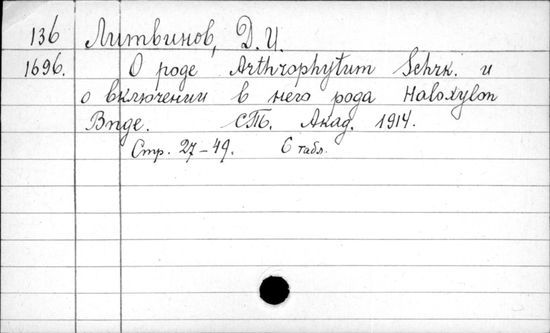 136 Литвинов, Д.И.
1696. О роде Arthrophytum Schrk. и
о включении в него рода Haloxylon
Bnge. СТб. Акад. 1914.
Стр. 27-49. С табл.